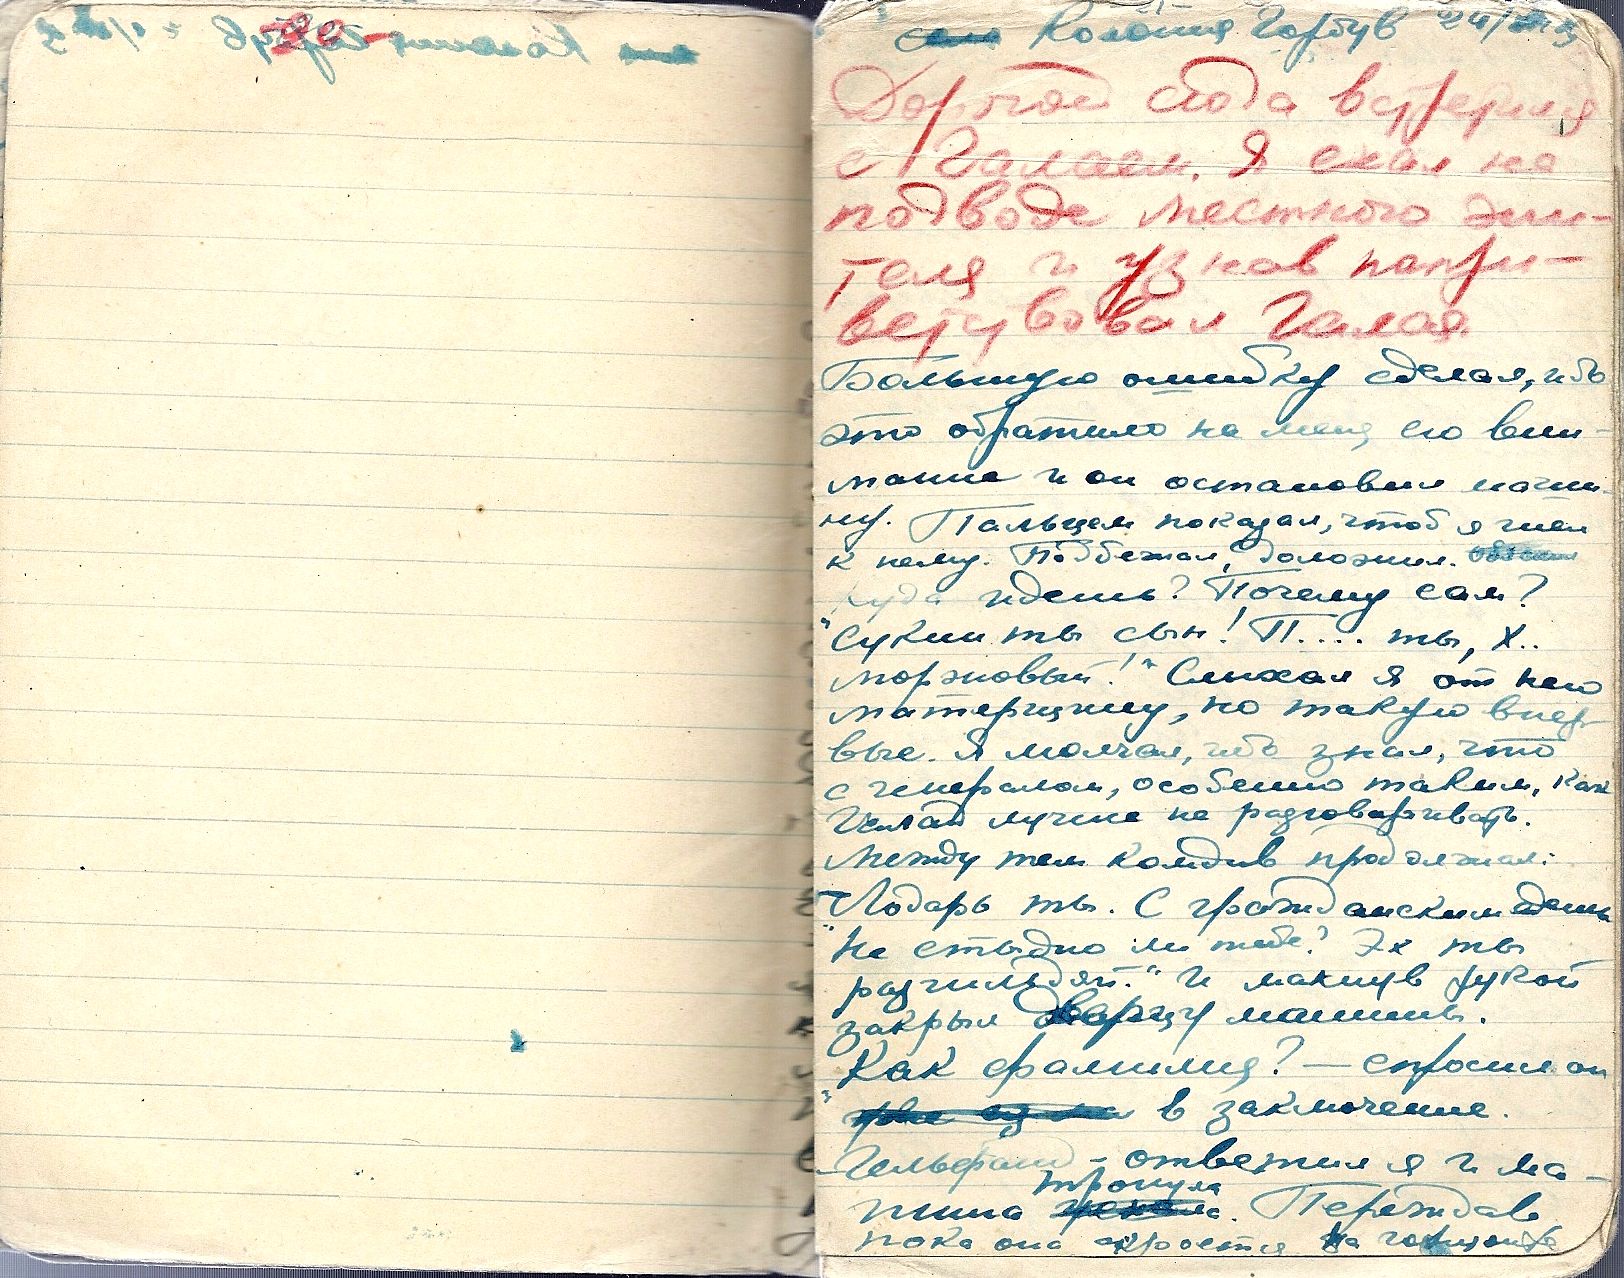 Колония Горбув
Дорогой сюда встретился
с Галаем. Я ехал на
подводе местного жи-
теля и узнав попри-
ветствовал Галая.
Большую ошибку сделал, ибо
это обратило на меня его вни-
мание и он остановил маши-
ну. Пальцем показал, чтоб я шел
к нему. Подбежал, доложил.
Куда идешь? Почему сам?
"Сукин ты сын! П.... ты, х..
моржовый!" Слыхал я от него
матерщину, но такую впер-
вые. Я молчал, ибо знал, что
с генералом, особенно таким, как
Галай лучше не разговаривать.
Между тем комдив продолжал:
"Лодарь ты. С гражданским едешь
Не стыдно ли тебе? Эх ты
разгильдяй." И махнув рукой
закрыл дверцу машины.
"Как фамилия? – спросил он
в заключение.
Гельфанд – ответил я и ма-
шина тронула. Переждав
пока она скроется на горизонте